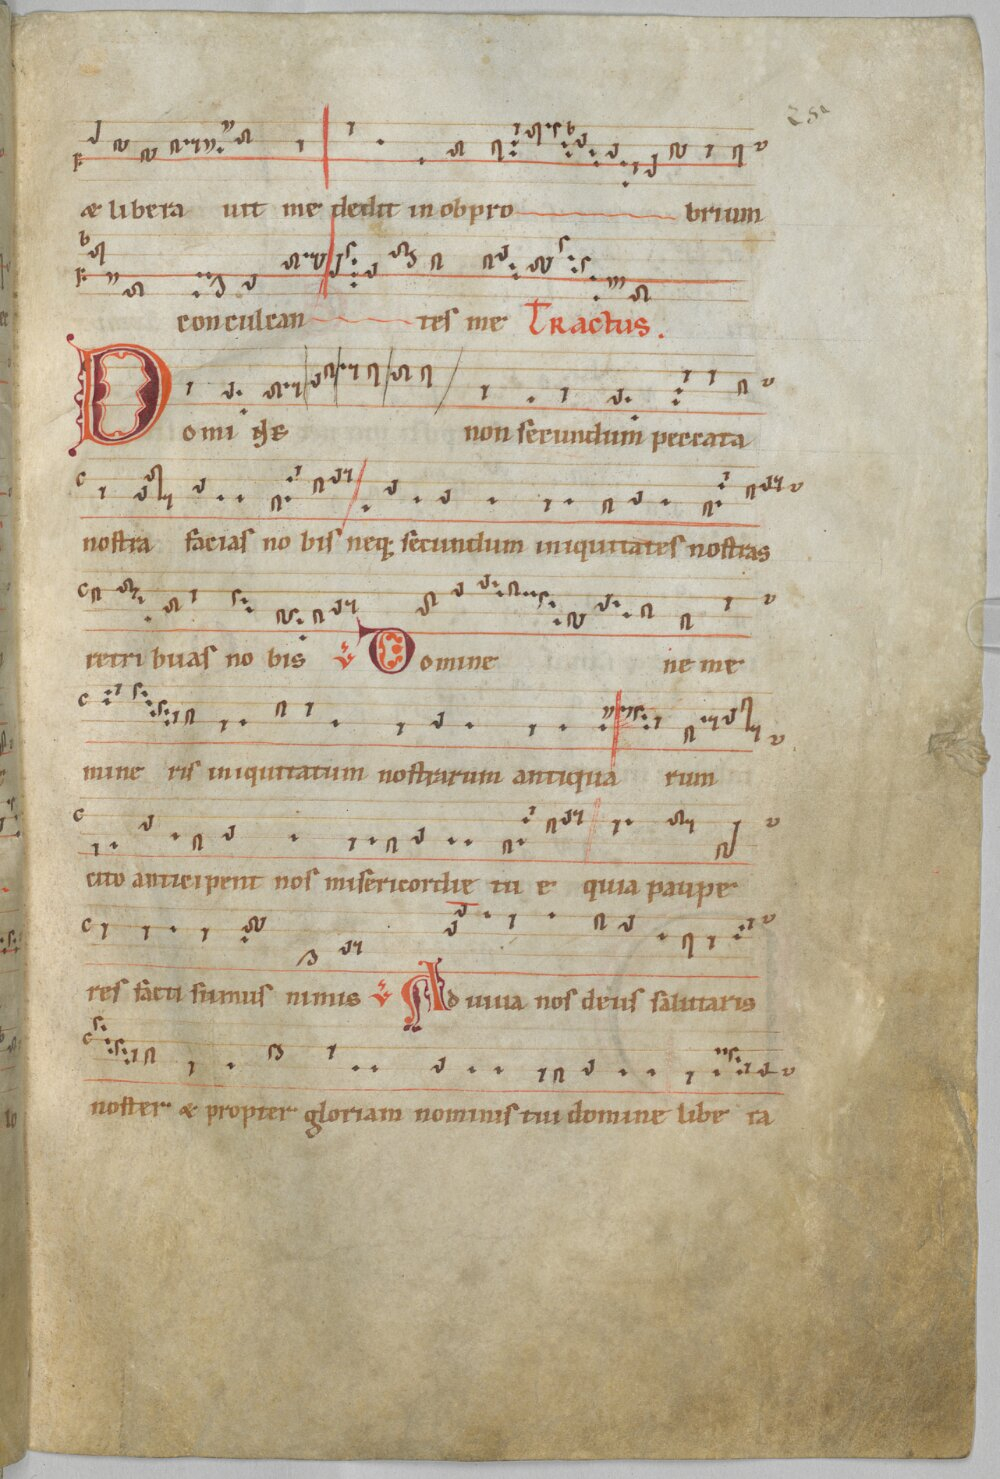 & libera uit me dedit in obpro brium
conculcan tes me Tractus.
Domi ne non secundum peccata
nostra facias no bis neq; secundum iniquitates nostras
retri buas no bis Domine ne me
mine ris iniquitatum nostrarum antiqua rum
cito anticipent nos misericordie tu e quia paupe
res facti sumus nimis Ad iuua nos deus salutaris
noster & propter gloriam nominis tui domine libe ra